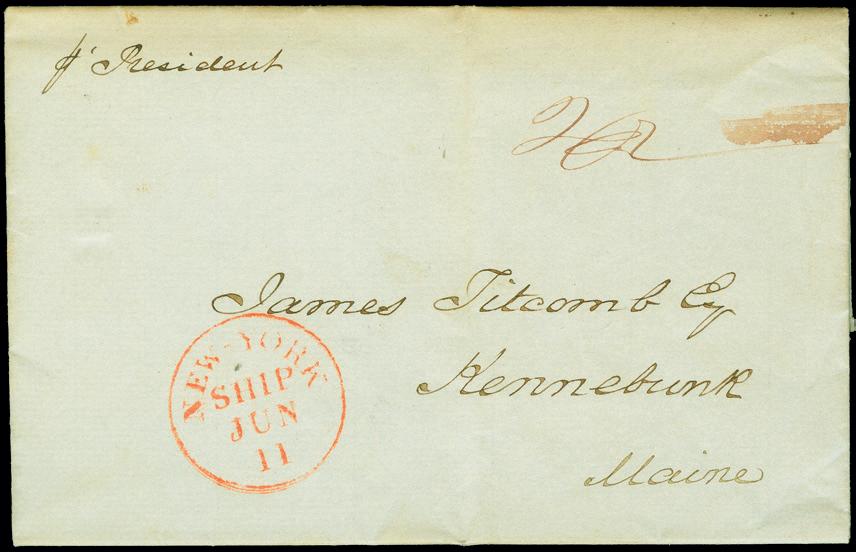 pr President
James Titcomb Esq
Kennebunk
Maine
NEW-YORK
SHIP
JUN
11